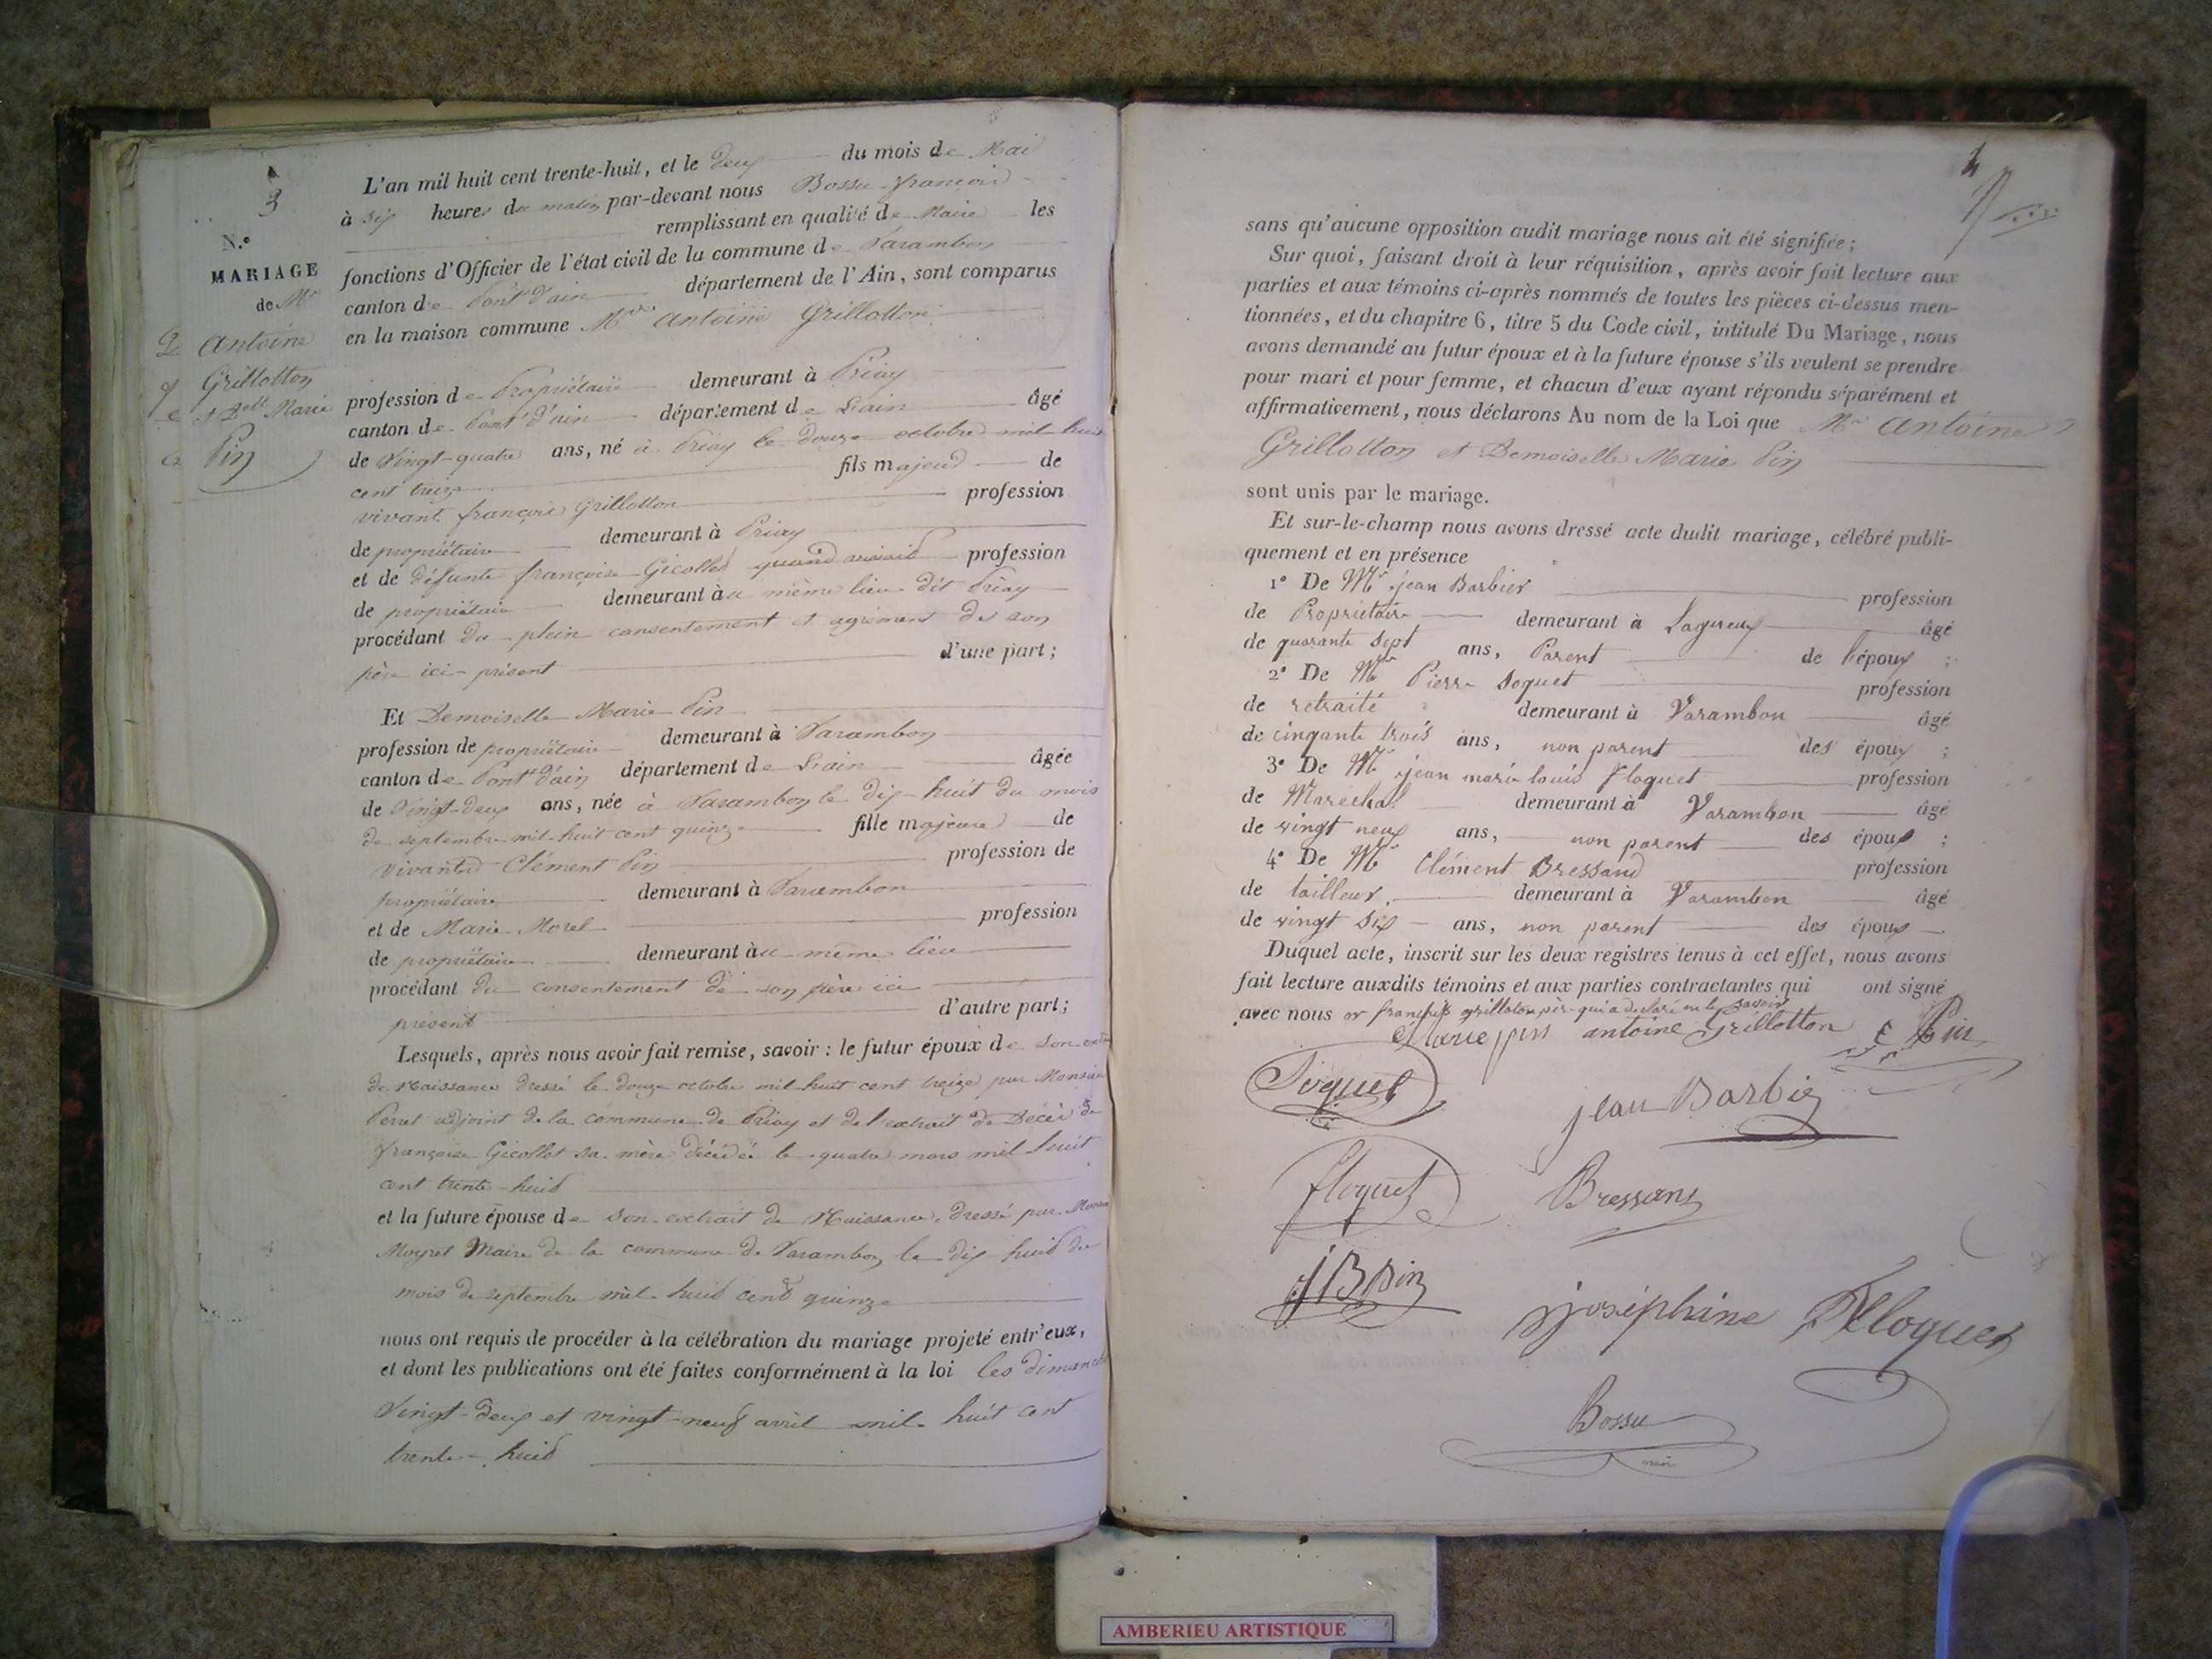 3
N.o
MARIAGE
de Mr
Antoine
Grillotton
et Delle Marie
Pin
L'an mil huit cent trente-huit, et le deux du mois de Mai
à six heures du matin par-devant nous Bossu françois
remplissant en qualité de Maire les
fonctions d'Officier de l'état civil de la commune de Varambon
canton de Pont d'ain département de l'Ain, sont comparus
en la maison commune Mr Antoine Grillotton
profession de Propriétaire demeurant à Priay
canton de Pont d'ain département de L'ain âgé
de Vingt-quatre ans, né à Priay le douze octobre mil huit
cent treize fils majeur de
vivant françois Grillotton profession
de propriétaire demeurant à Priay
et de défunte françoise Gicollet quand vivait profession
de propriétaire demeurant au même lieu dit Priay
procédant du plein consentement et agrément de son
père ici-présent d'une part;
Et Demoiselle Marie Pin
profession de propriétaire demeurant à Varambon
canton de Pont d'ain département de L'ain âgée
de Vingt-deux ans, née à Varambon le dix-huit du mois
de septembre mil-huit cent quinze fille majeure de
vivants Clément Pin profession de
propriétaire demeurant à Varambon
et de Marie Morel profession
de propriétaire demeurant au même lieu
procédant du consentement de son père ici
présent d'autre part;
Lesquels, après nous avoir fait remise, savoir : le futur époux de son
de Naissance dressé le douze octobre mil-huit cent treize par Monsieur
Perret adjoint de la commune de Priay et de l'extrait de Décès de
françoise Gicollet sa mère décédée le quatre mars mil-huit
cent trente-huit
et la future épouse de son extrait de Naissance, dressé par
Moyret Maire de la commune de Varambon le dix huit du
mois de septembre mil huit cent quinze
nous ont requis de procéder à la célébration du mariage projeté entr'eux,
et dont les publications ont été faites conformément à la loi les dimanches
Vingt-deux et vingt-neuf avril mil huit cent
trente-huit
4
sans qu'aucune opposition audit mariage nous ait été signifiée;
Sur quoi, faisant droit à leur réquisition, après avoir fait lecture aux
parties et aux témoins ci-après nommés de toutes les pièces ci-dessus men-
tionnées, et du chapitre 6, titre 5 du Code civil, intitulé Du Mariage, nous
avons demandé au futur époux et à la future épouse s'ils veulent se prendre
pour mari et pour femme, et chacun d'eux ayant répondu séparément et
affirmativement, nous déclarons Au nom de la Loi que Mr Antoine
Grillotton et Demoiselle Marie Pin
sont unis par le mariage.
Et sur-le-champ nous avons dressé acte dudit mariage, célébré publi-
quement et en présence
1o De Mr jean Barbier profession
de Propriétaire demeurant à âgé
de quarante sept ans, Parent de l'époux ;
2o De Mr Pierre Soquet profession
de retraité demeurant à Varambon âgé
de cinqante trois ans, non parent des époux ;
3o De Mr jean marie louis floquet profession
de Maréchal demeurant à Varambon âgé
de vingt neuf ans, non parent des époux ;
4o De Mr Clément Bressand profession
de tailleur demeurant à Varambon âgé
de vingt six ans, non parent des époux
Duquel acte, inscrit sur les deux registres tenus à cet effet, nous avons
fait lecture auxdits témoins et aux parties contractantes qui ont signé
avec nous françois grilloton père qui a declaré ne le savoir
Marie pin antoine Grillotton C Pin
Soquet jean Barbier
floquet Bressand
JB Pin joséphine Floquet
Bossu
AMBERIEU ARTISTIQUE